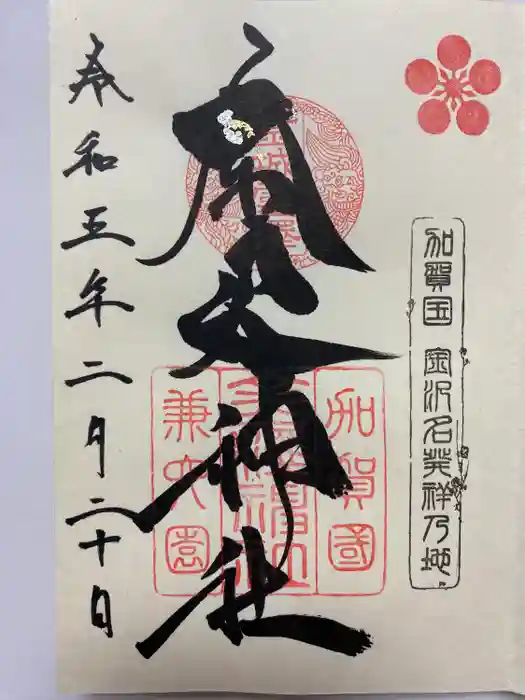 加賀国 金沢名発祥乃地
金澤神社
加賀國
兼六園
令和五年二月二十日